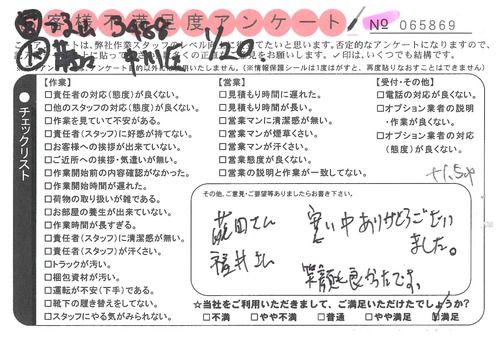 客様不満足度アンケート
No 065869
3488
1/20
このアンケートは、弊社作業スタッフのレベル向上に役立てたいと思います。否定的なアンケートになりますので、
チェックリスト
【作業】
□責任者の対応(態度)が良くない。
□他のスタッフの対応(態度)が良くない。
□作業を見ていて不安がある。
□責任者(スタッフ)に好感が持てない。
□お客様への挨拶が出来ていない。
□ご近所への挨拶・気遣いが無い。
□作業開始前の内容確認がなかった。
□作業開始時間が遅れた。
□荷物の取り扱いが雑である。
□お部屋の養生が出来ていない。
□作業時間が長すぎる。
□責任者(スタッフ)に清潔感が無い。
□責任者(スタッフ)が汗くさい。
□トラックが汚い。
□梱包資材が汚い。
□運転が不安(下手)である。
□靴下の履き替えをしてない。
□スタッフにやる気がみられない。
【営業】
□見積もり時間に遅れた。
□見積もり時間が長い。
□営業マンに清潔感が無い。
□営業マンが煙草くさい。
□営業マンが汗くさい。
□営業態度が良くない。
□営業の説明と作業が一致してない。
【受付・その他】
□電話の対応が良くない。
□オプション業者の説明
・作業が良くない。
□オプション業者の対応
(態度)が良くない。
その他、ご意見・ご要望等ありましたらお書き下さい。
福井さん
寒い中ありがとうござい
ました。
笑顔も良かったです。
☆当社をご利用いただきまして、ご満足いただけたでしょうか?
□不満 □やや不満 □普通 □やや満足 □満足